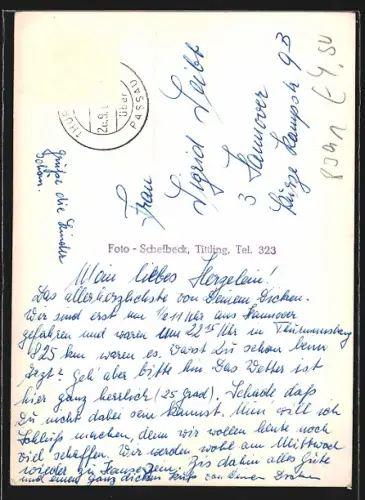 THUR
26.9.
über
PASSAU
8391 € 4,50
Frau
Sigrid Seibt
3 Hannover
Kampstr 9B
grüße die Kinder
schön.
Foto - Schefbeck, Tittling, Tel. 323
Mein liebes Herzelein!
Das allerherzlichste von Deinem Dicken.
Wir sind erst um Uhr aus Hannover
gefahren und waren um 22 15 Uhr in Thurmansbang
825 km waren es. Warst Du schon beim
Arzt? Geh' aber bitte hin. Das Wetter ist
hier ganz herrlich (25 Grad). Schade daß
Du nicht dabei sein kannst. Nun will ich
Schluß machen, denn wir wollen heute noch
viel schaffen. Wir werden wohl am Mittwoch
wieder zu Hause sein. Bis dahin alles Gute
und einen ganz dicken von Deinem Dicken